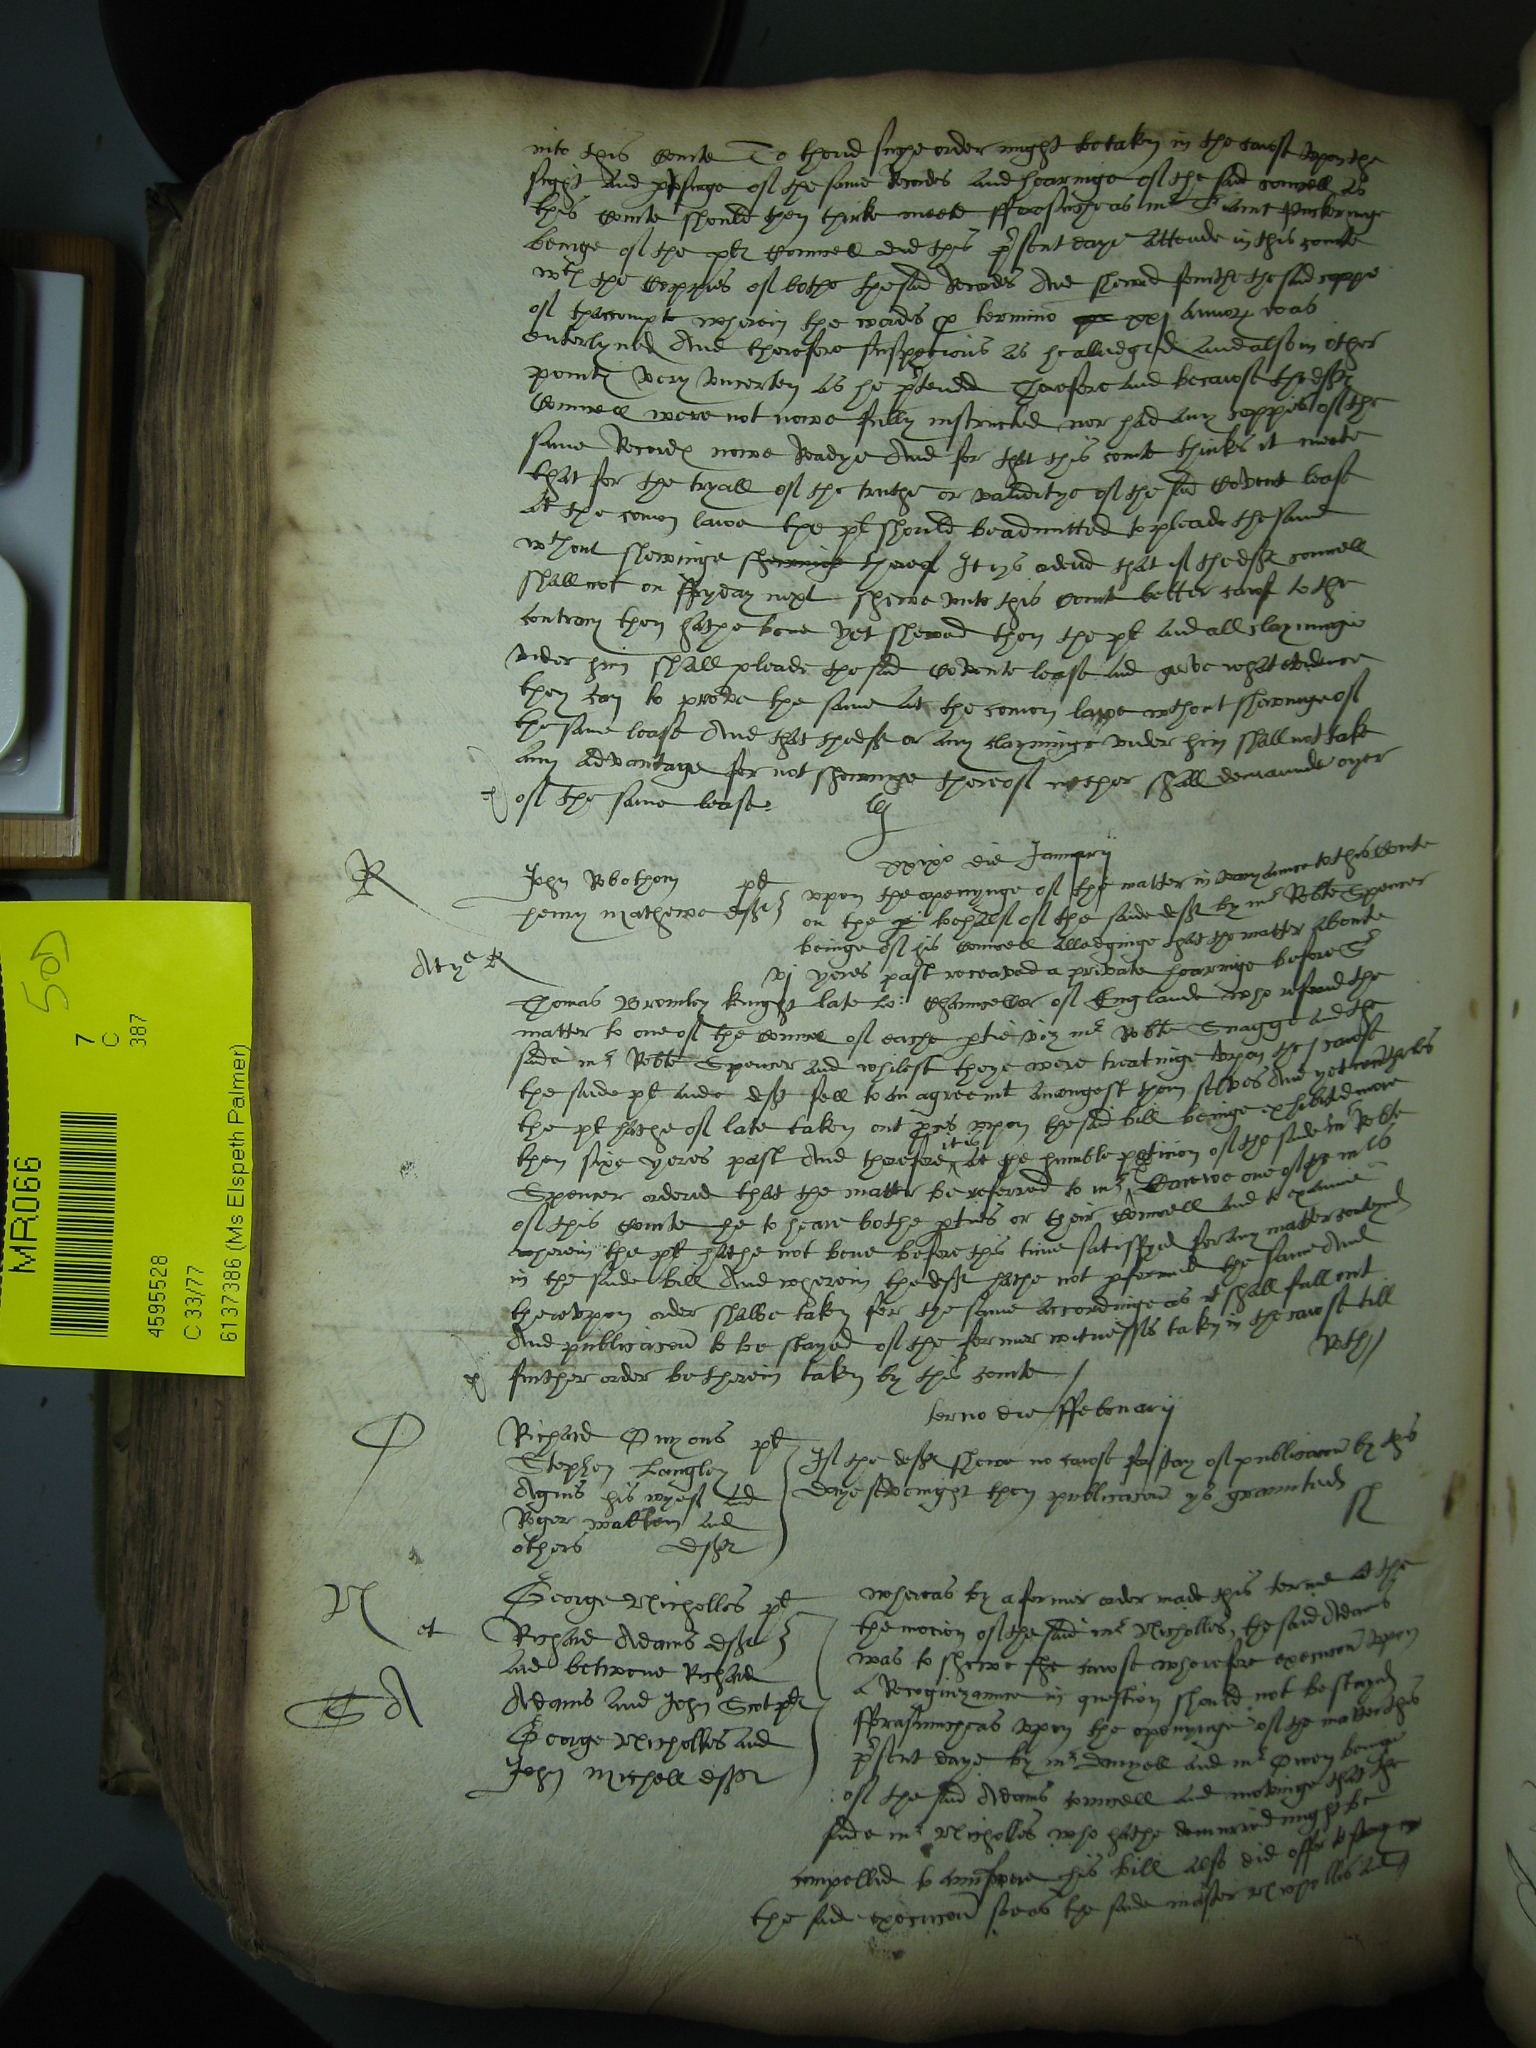 into this courte To thend suche order might be taken in the cause upon the
sight and p[er]usinge of the same Recordes and hearinge of the said councell as
this courte should then thinke meete fforasmuche as mr Puckeringe
beinge of the plts councell did this p[rese]nt daye attende in this courte
wth the coppies of bothe the said Recordes And shewed fourthe the said coppie
of thaccompte wherein the wordes p termino xxj annorum was
enterlyned And therefore suspicious as he alledged and also in other
pointes very uncerten as he p[re]tended Therefore and because the deftes
councell were not nowe fully instructed nor had any coppies of the
same Recordes nowe Readye And for that this courte thinkes it meete
that for the tryall of the truthe or validitye of the said Covent lease
at the comon lawe the plt should be admitted to pleade the same
wthout shewinge shewinge thereof It ys ordered that if the deftes councell
shall not on ffryday next shewe unto this courte better cause to the
contrary then hathe bene yet shewed then the plt and all clayminge
under him shall pleade the said Covente lease and geve what evidence
they can to prove the same at the comon lawe wthout shewinge of
the same lease And that the deft or any clayminge under him shall not take
any advantage for not shewinge thereof nether shall demaunde oyer
of the same lease
xxixo die Januarij
R
John Robothom plt
Henry Mathewe deft
upon the openynge of the matter in varyaunce to this courte
on the behalf of the saide deft by mr Robte Spencer
beinge of his councell alledginge that the matter aboute
vj yeres past receaved a private hearinge before Sr
Thomas Bromley knight late Lo: Chauncellor of Englande who referred the
matter to one of the councell of eache ptie viz mr Robte Snagge and the
saide mr Robte Spencer and whilest theye were treatinge upon the cause
the saide plt and deft fell to an agreemt amongest them selves And yet nevertheles
the plt hathe of late taken out p[ro]ces upon the said bill beinge exhibited more
then sixe yeres past And therefore it is at the humble peticion of the saide mr Robte
Spencer ordered that the matter be referred to mr Carewe one of the mrs
of this courte he to heare bothe pties or their councell and to examine
wherein the plt hathe not bene before this time satisfyed for any matter conteyned
in the saide bill And wherein the deft hathe not pformed the same And
thereupon order shalbe taken for the same accordinge as it shall fall out
And publicacon to be stayed of the former witnesses taken in the cause till
further order be therein taken by this courte
Primo die ffebruarij
O
Richard Onyons plt
Stephen Langley
Agnis his wyef and
Roger Walker and
others deftes
If the deftes shewe no cause for stay of publicacon by this
daye sevenight then publicacon ys graunted
N et
A
George Nicholles plt
Richard Adams deft
and betwene Richard
Adams and John Scot plts
George Nicholles and
John Michell deftes
whereas by a former order made this terme at the
the mocion of the said mr Nicholles the said Adams
was to shewe the cause wherefore execucon upon
a Recognizaunce in question should not be stayed
fforasmucheas upon the openynge of the matter this
p[rese]nt daye by mr Danyell and mr Owen beinge
of the said Adams councell and movinge that the
saide mr Nicholles who hathe demurred might be
compelled to aunswere his bill also did offer to stay
the said execucon soe as the saide master Nicholles and
MR066
7
C
387
4595528
C 33/77
6137386 (Ms Elspeth Palmer)